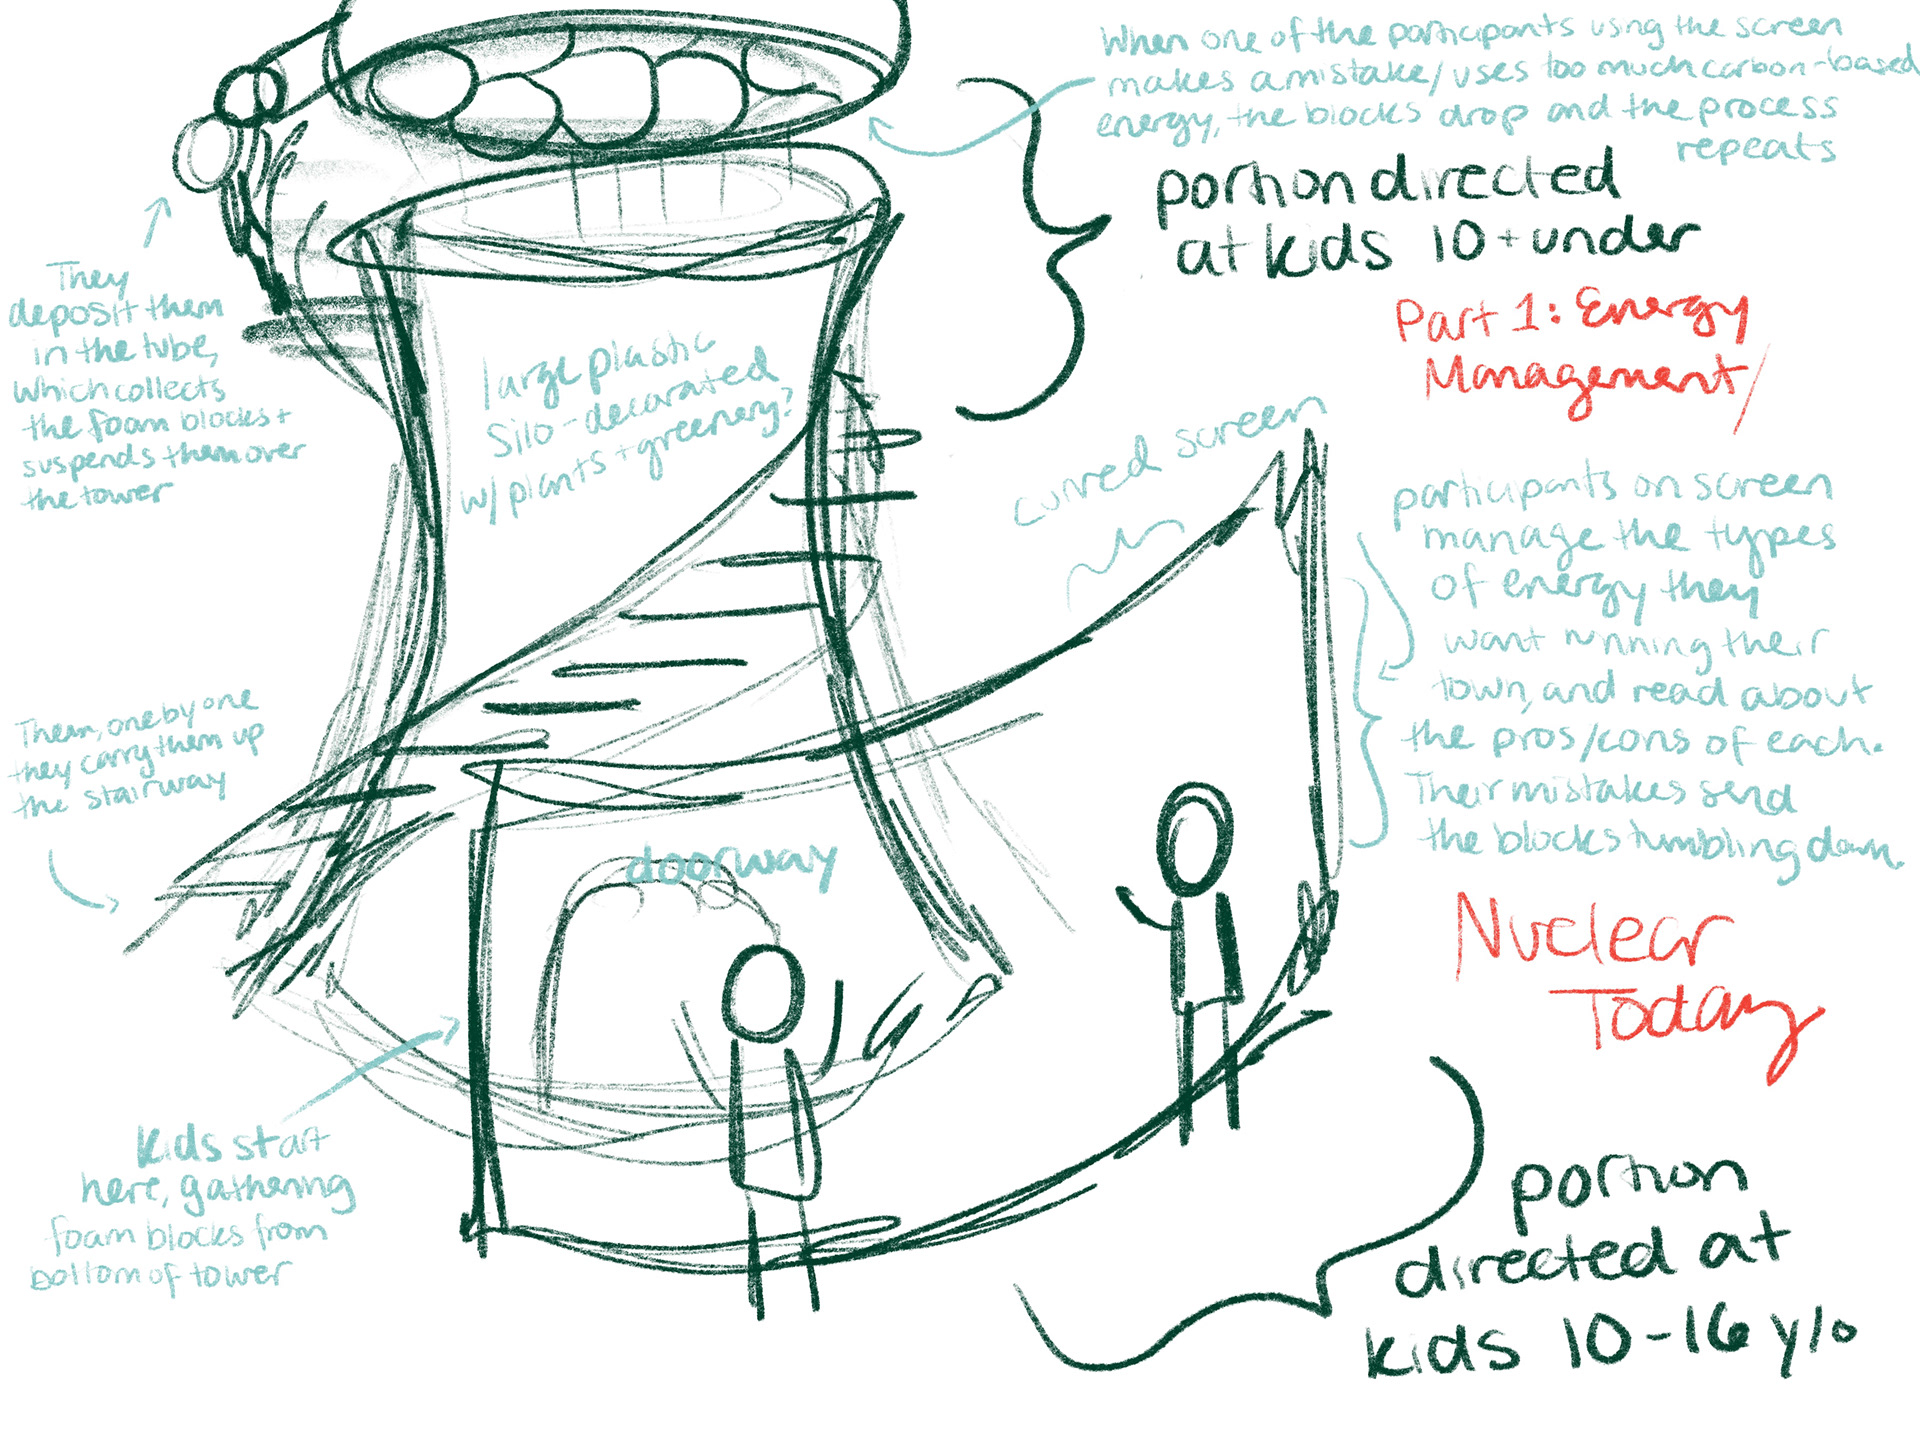 When one of the participants using the screen
makes a mistake/uses too much carbon-based
energy, the blocks drop and the process
repeats
portion directed
at kids 10 + under
Part 1: Energy
Management/
They
deposit them
in the tube,
which collects
the foam blocks +
suspends them over
the tower
large plastic
silo - decorated
w/ plants + greenery?
curved screen
participants on screen
manage the types
of energy they
want running their
town, and read about
the pros/cons of each.
Their mistakes send
the blocks tumbling down.
Them, one by one
they carry them up
the stairway
doorway
Nuclear
Today
kids start
here, gathering
foam blocks from
bottom of tower
portion
directed at
kids 10-16 y/o